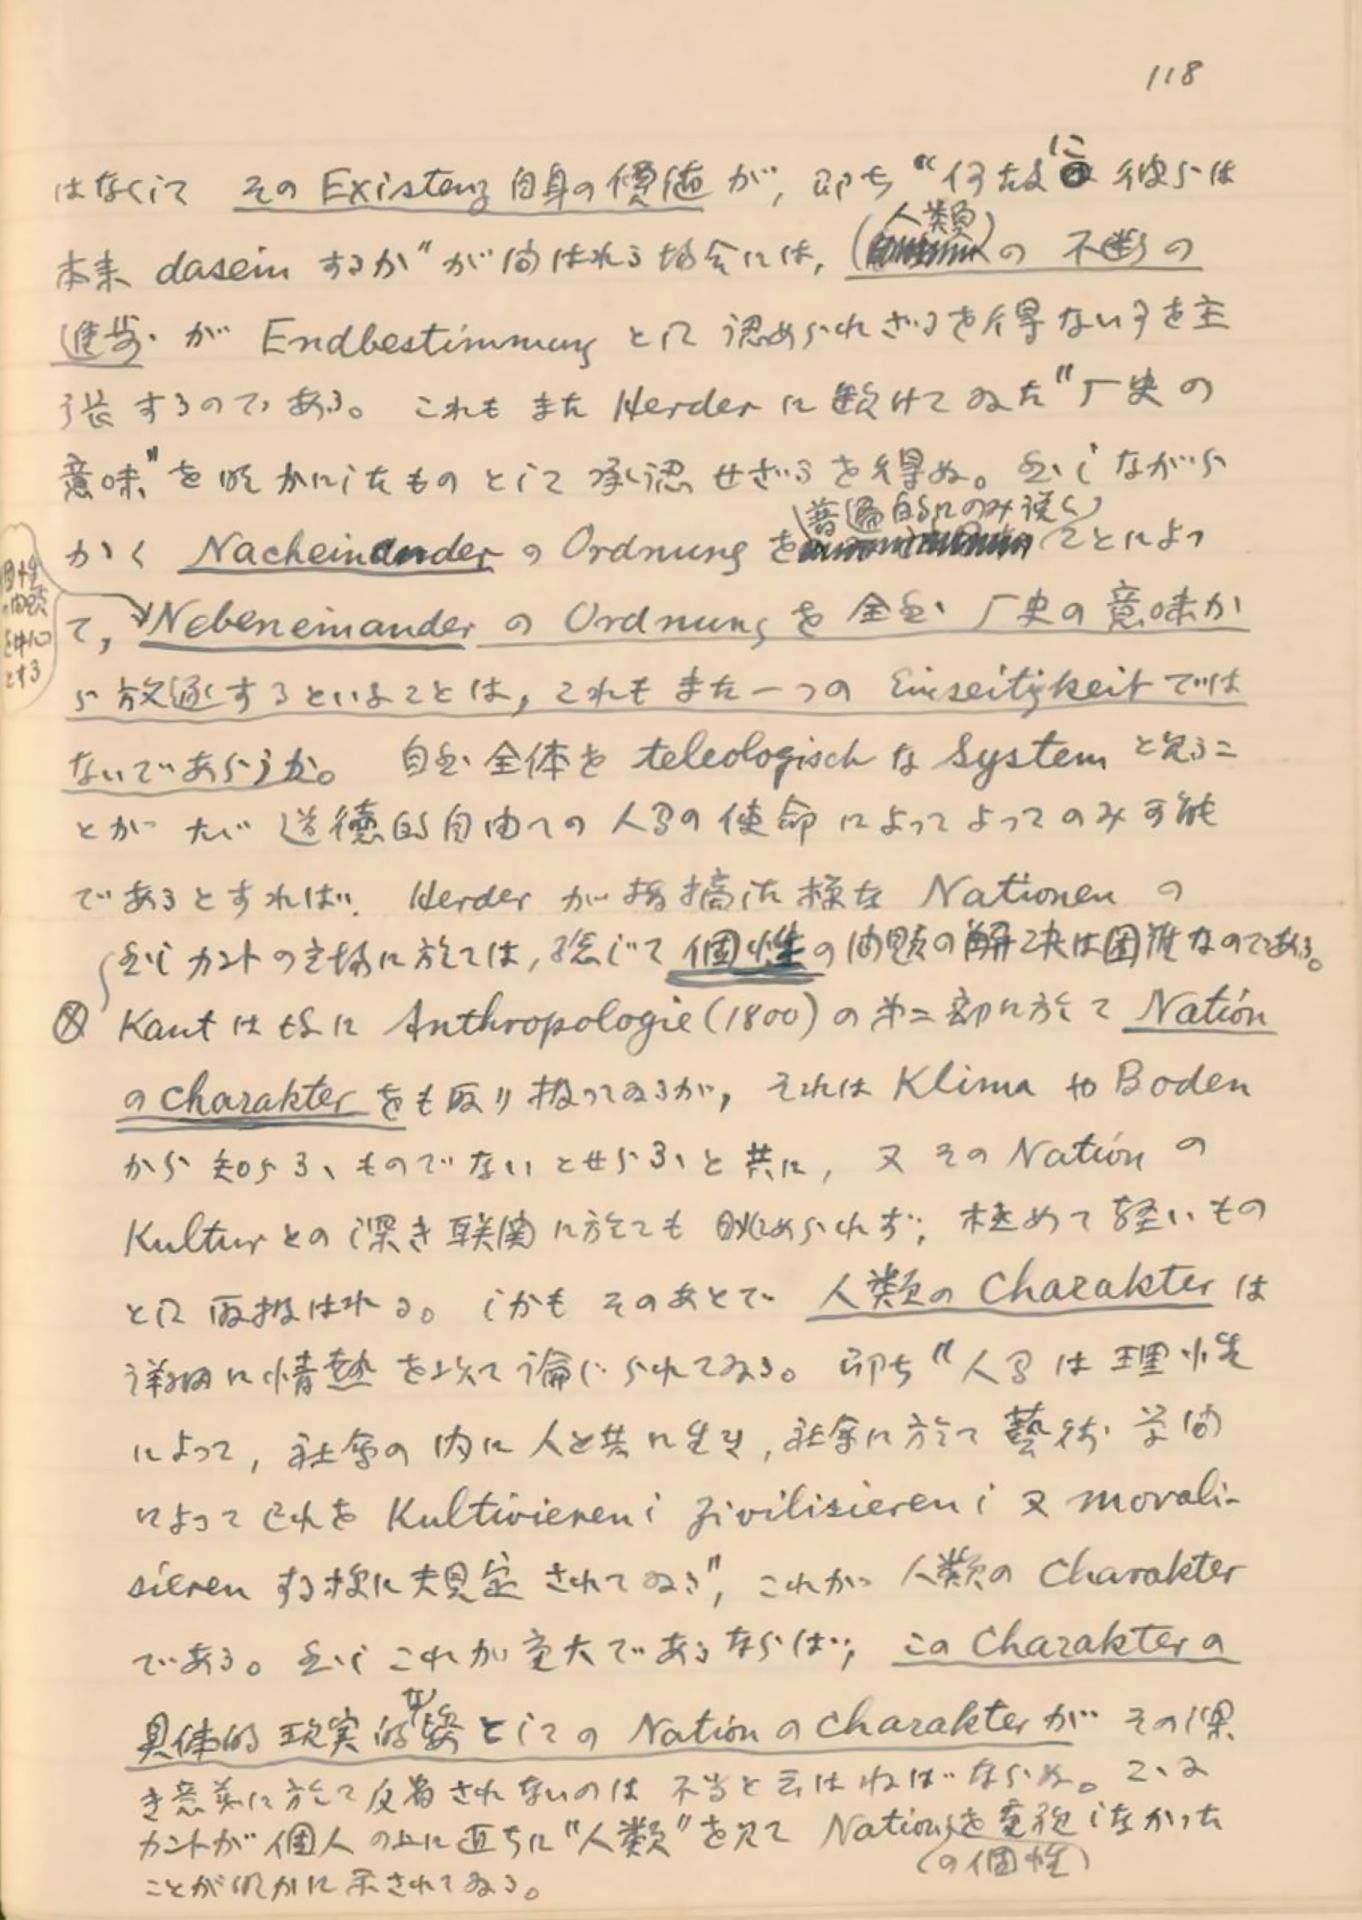 118
はなくして その Existenz 自身の價値 が, 即ち “何故に 彼らは
本来 dasein するか” が問はれる場合には, (人類)の 不断の
進歩 が Endbestimmung として 認められざるを得ない事を主
張するのである。 これもまた Herder に欠けてゐた “厂史の
意味” を明かにしたものとして 承認せざるを得ぬ。 然しながら
かく Nacheinander の Ordnung を(普遍的にのみ説く)ことによっ
個性の問題を中心とする
て, Nebeneinander の Ordnung を 全然 厂史の意味か
ら放逐するといふことは, これもまた一つの Einseitigkeit では
ないであらうか。 自然全体を teleologisch な System と見るこ
とが たゞ 道徳的自由への 人間の使命 によってよってのみ可能
であるとすれば, Herder が指摘した様な Nationen の
然しカントの立場に於ては, 総じて 個性の問題の解決は困難なのである。
⊗ Kant は後に Anthropologie (1800) の第二部に於て Nation
の Charakter をも取り扱ってゐるが, それは Klima や Boden
から知らるゝものでないとせらるゝと共に, 又その Nation の
Kultur との深き聯関に於ても眺められず, 極めて軽いもの
として取扱はれる。 しかもそのあとで 人類の Charakter は
詳細に情熱を以て論じられてゐる。 即ち “人間は理性
によって, 社会の内に人と共に生き, 社会に於て藝術 学問
によって己れを Kultivieren し zivilisieren し 又 morali-
sieren する様に規定されてゐる”, これが 人類の Charakter
である。 然しこれが重大であるならば, この Charakter の
具体的 現実的な姿としての Nation の Charakter が その深
き意義に於て反省されないのは 不当と云はねばならぬ。 こゝに
カントが個人の上に直ちに “人類” を見て Nation を重視しなかった
(の個性)
ことが明かに示されてゐる。